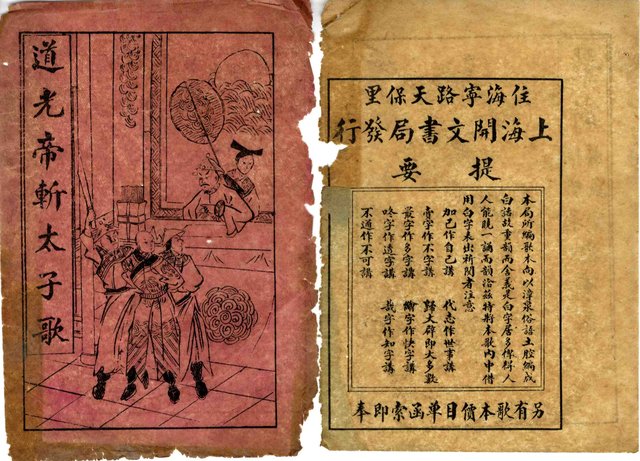 道光帝斬太子歌
住海寧路天保里
上海開文書局發行
提要
本局所編歌本向以漳泉俗語土腔編成
白話故重韻而舍義是白字居多俾得人
人能曉一誦而韻洽茲特將本歌內中借
用白字表出祈閱者注意
加己作自己講 代志作世事講
字作不字講 歸大即大多數
字作多字講 字作快字講
字作這字講 哉字作知字講
不通作不可講
另有歌本價目單函索即奉